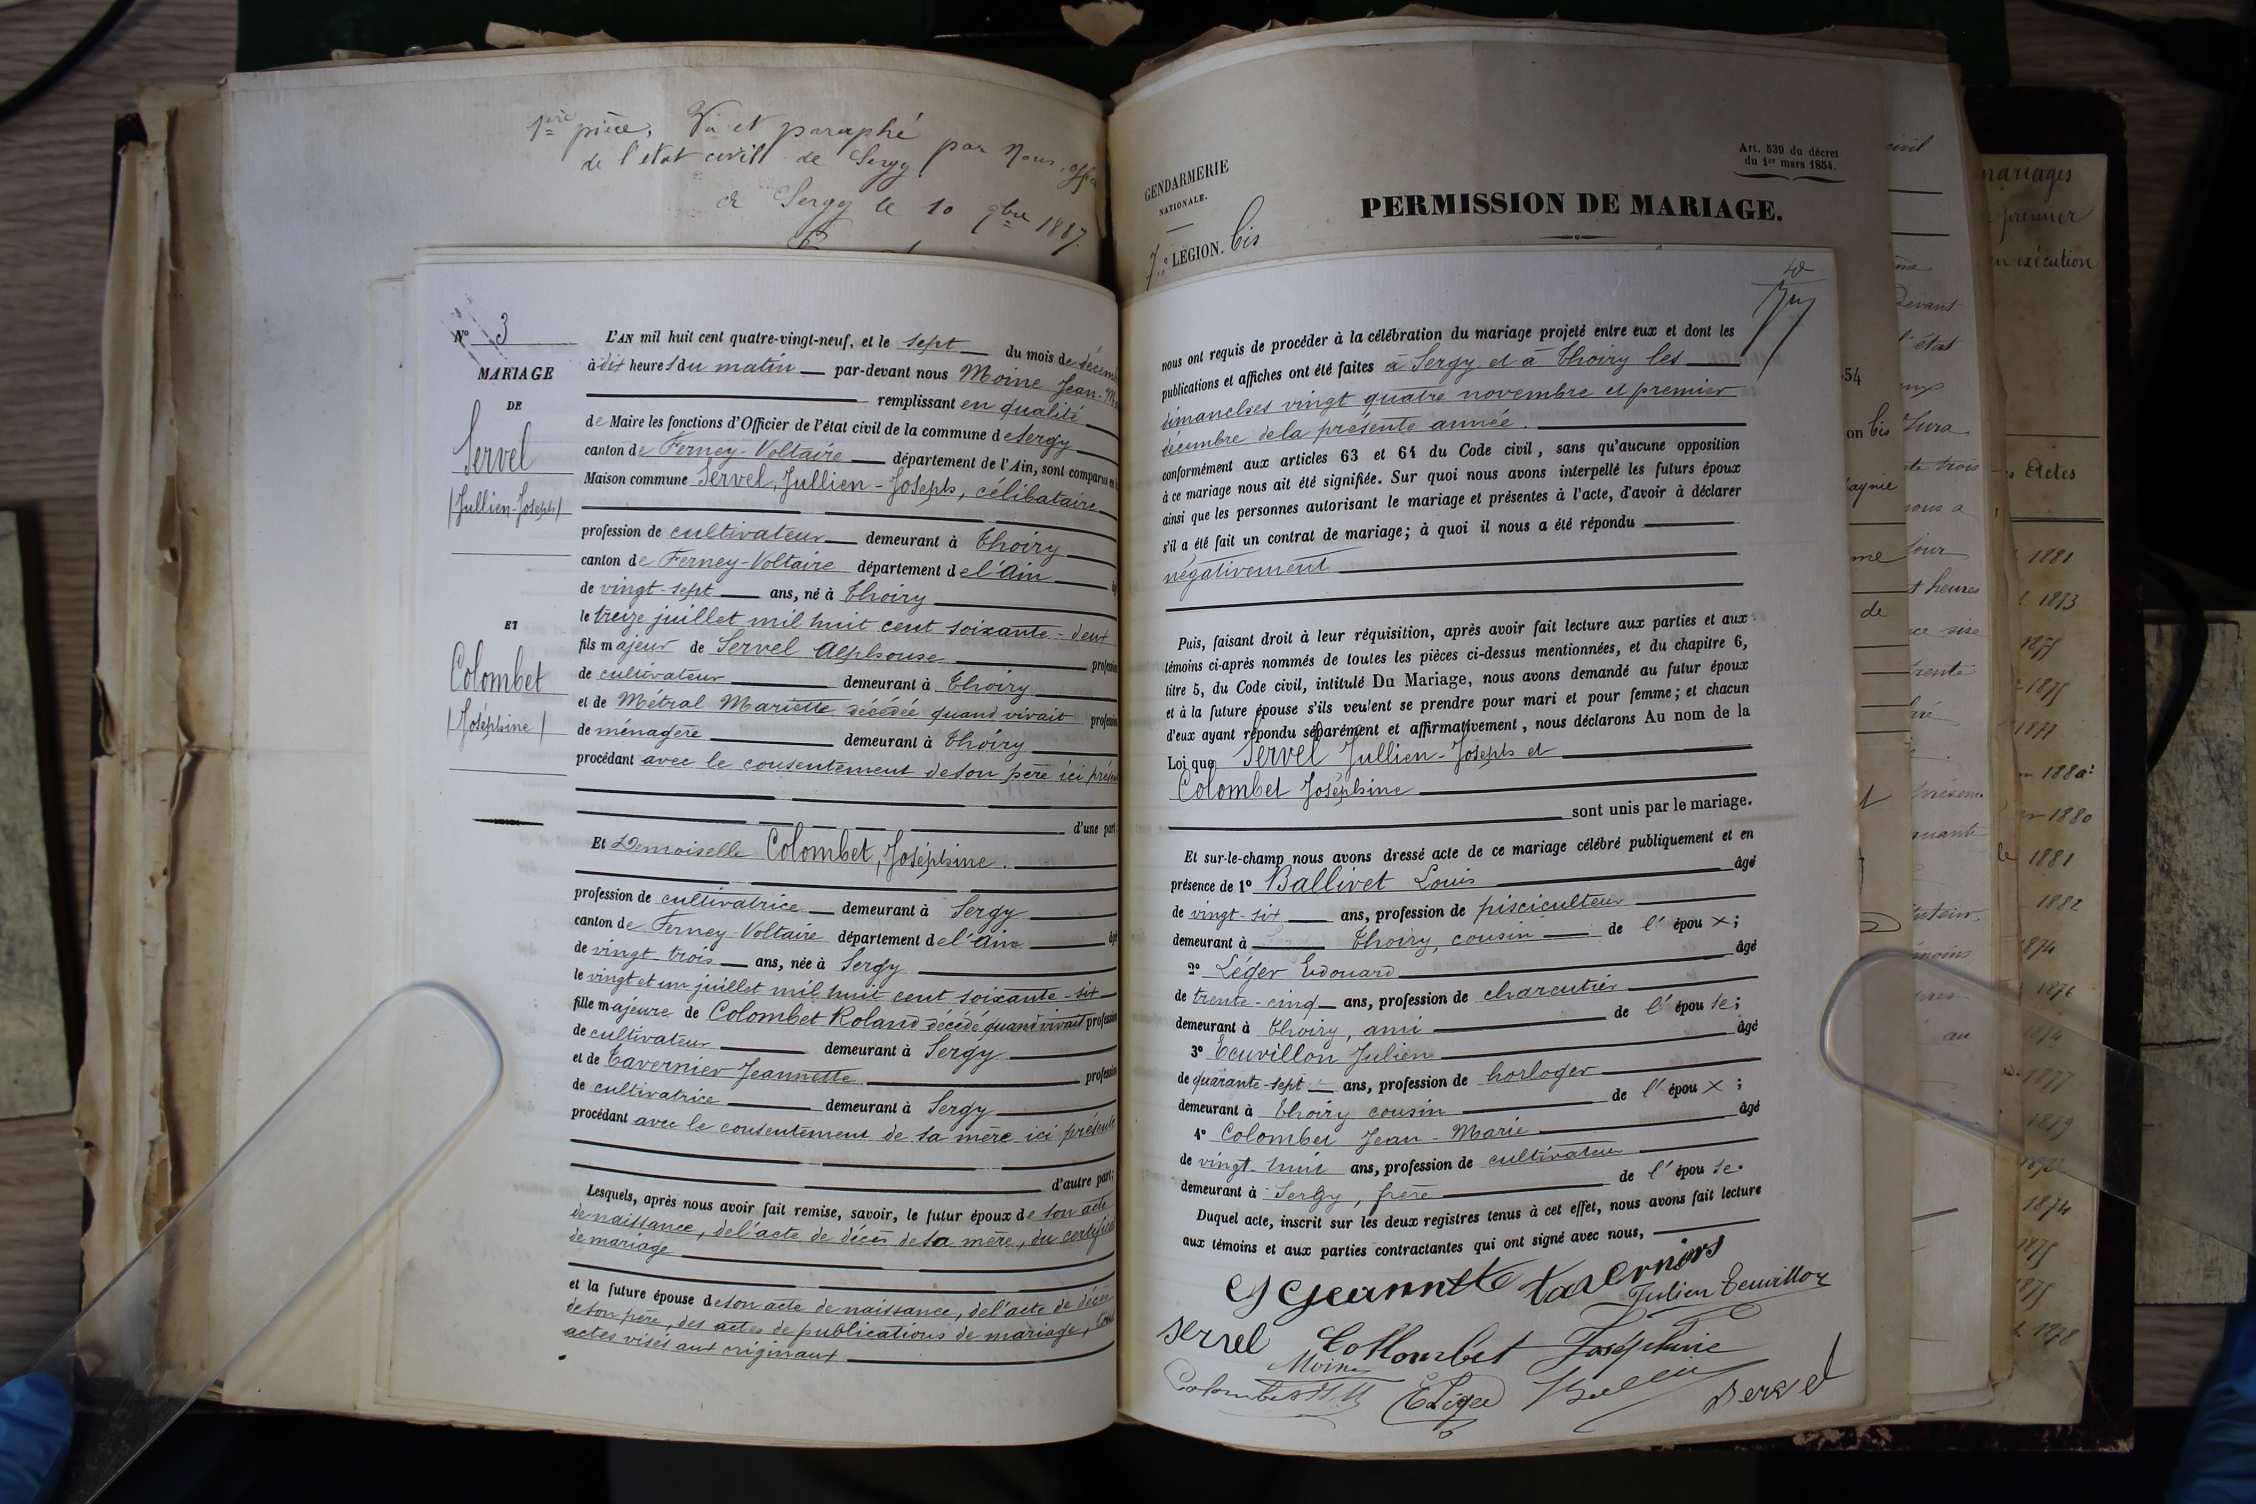 1ère pièce, Vu et paraphé par Nous, offic
de l'état civil de Sergy
à Sergy le 10 9bre 1887.
N° 3
MARIAGE
DE
Servel
(Jullien-Joseph)
ET
Colombet
(Joséphine)
L'AN mil huit cent quatre-vingt-neuf, et le sept du mois de décem
à dix heures du matin par-devant nous Moine Jean-M
remplissant en qualité
de Maire les fonctions d'Officier de l'état civil de la commune de Sergy
canton de Ferney-Voltaire département de l'Ain, sont comparus en
Maison commune Servel, Jullien-Joseph, célibataire
profession de cultivateur demeurant à Thoiry
canton de Ferney-Voltaire département de l'Ain âg
de vingt-sept ans, né à Thoiry
le treize juillet mil huit cent soixante-deux
fils majeur de Servel Alphonse profession
de cultivateur demeurant à Thoiry
et de Métral Mariette décédée quand vivait profession
de ménagère demeurant à Thoiry
procédant avec le consentement de son père ici présen
d'une part
Et Demoiselle Colombet, Joséphine.
profession de cultivatrice demeurant à Sergy
canton de Ferney-Voltaire département de l'Ain âg
de vingt trois ans, née à Sergy
le vingt et un juillet mil huit cent soixante-six
fille majeure de Colombet Roland décédé quand vivait profession
de cultivateur demeurant à Sergy
et de Tavernier Jeannette profession
de cultivatrice demeurant à Sergy
procédant avec le consentement de sa mère ici présente
d'autre part;
Lesquels, après nous avoir fait remise, savoir, le futur époux de son acte
de naissance, de l'acte de décès de sa mère, du certificat
de mariage
et la future épouse de son acte de naissance, de l'acte de décès
de son père, des actes de publications de mariage, tous
actes visés aux originaux
GENDARMERIE
NATIONALE.
7e LÉGION. bis
Art. 539 du décret
du 1er mars 1854.
PERMISSION DE MARIAGE.
nous ont requis de procéder à la célébration du mariage projeté entre eux et dont les
publications et affiches ont été faites à Sergy et à Thoiry les
dimanches vingt quatre novembre et premier
décembre de la présente année.
conformément aux articles 63 et 64 du Code civil, sans qu'aucune opposition
à ce mariage nous ait été signifiée. Sur quoi nous avons interpellé les futurs époux
ainsi que les personnes autorisant le mariage et présentes à l'acte, d'avoir à déclarer
s'il a été fait un contrat de mariage; à quoi il nous a été répondu
négativement
Puis, faisant droit à leur réquisition, après avoir fait lecture aux parties et aux
témoins ci-après nommés de toutes les pièces ci-dessus mentionnées, et du chapitre 6,
titre 5, du Code civil, intitulé Du Mariage, nous avons demandé au futur époux
et à la future épouse s'ils veulent se prendre pour mari et pour femme; et chacun
d'eux ayant répondu séparément et affirmativement, nous déclarons Au nom de la
Loi que Servel Jullien-Joseph et
Colombet Joséphine
sont unis par le mariage.
Et sur-le-champ nous avons dressé acte de ce mariage célébré publiquement et en
présence de 1° Ballivet Louis âgé
de vingt-six ans, profession de pisciculteur
demeurant à Thoiry, cousin de l'époux;
2° Léger Edouard âgé
de trente-cinq ans, profession de charcutier
demeurant à Thoiry, ami de l'épouse;
3° Ecuvillon Julien âgé
de quarante-sept ans, profession de horloger
demeurant à Thoiry cousin de l'époux;
4° Colombet Jean-Marie âgé
de vingt-huit ans, profession de cultivateur
demeurant à Sergy, frère de l'épouse.
Duquel acte, inscrit sur les deux registres tenus à cet effet, nous avons fait lecture
aux témoins et aux parties contractantes qui ont signé avec nous,
Jeannette taverniers
Julien Ecuvillon
servel Collombet Joséphine
Moine
Colombet J M E Léger Servel
54
on bis
agnie
me
de
civil
devant
l'état
Jura
trois
nous a
jour
heures
sise
trente
au
mariages
premier
en exécution
Actes
1881
1873
1877
1875
1877
1880
1880
1881
1882
1874
1876
1874
1877
1879
1874
1878